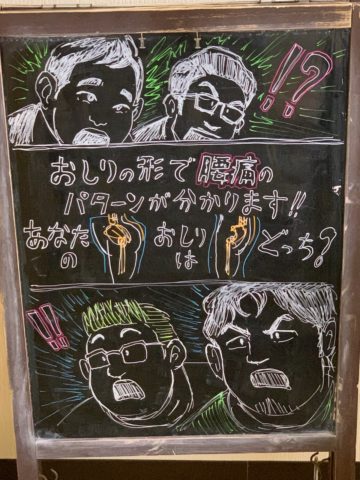 !!?
おしりの形で腰痛の
パターンが分かります!!
あなたの おしりは どっち?
!!